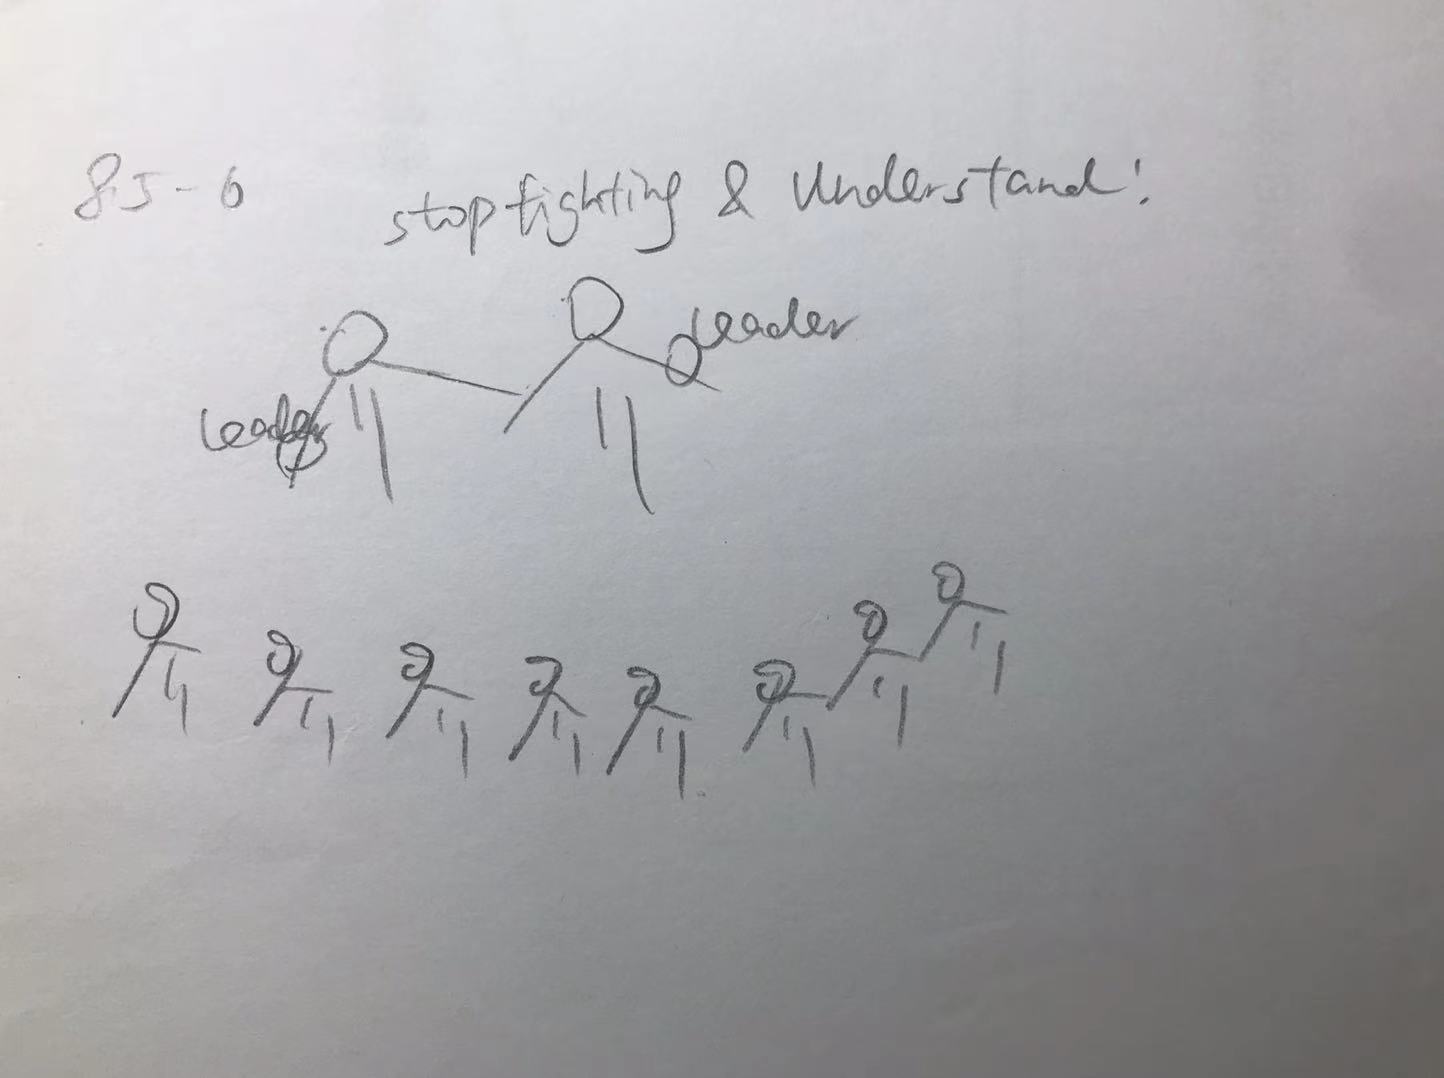 8.5-6 stop fighting & Understand!
leader
leader